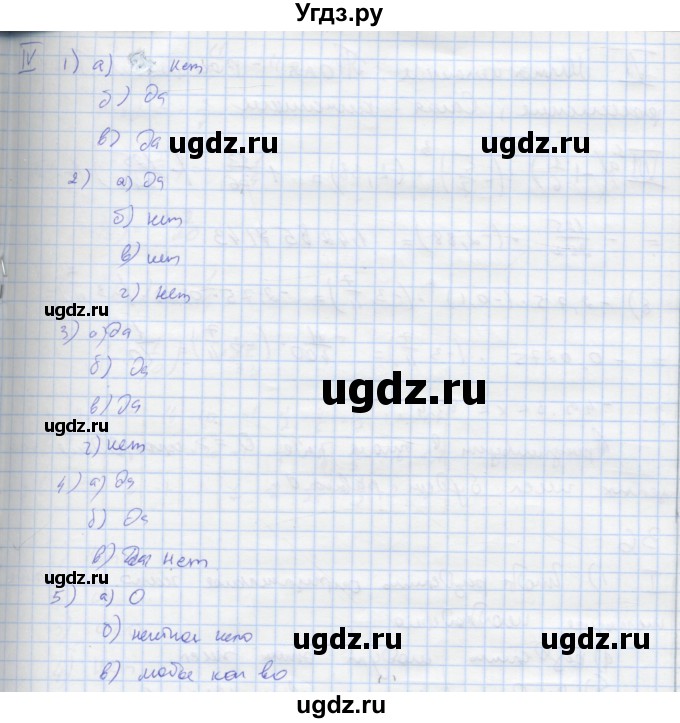 Угдз.ру
IV 1) а) нет
б) Да
в) Да
ugdz.ru ugdz.ru
2) а) Да
б) нет
в) нет
г) нет
ugdz.ru
3) а) Да
б) Да
ugdz.ru
в) Да
ugdz.ru
г) нет
4) а) Да
б) Да
в) нет
ugdz.ru
5) а) 0
б) нечётное
ugdz.ru ugdz.ru
в) кол во
ugdz.ru